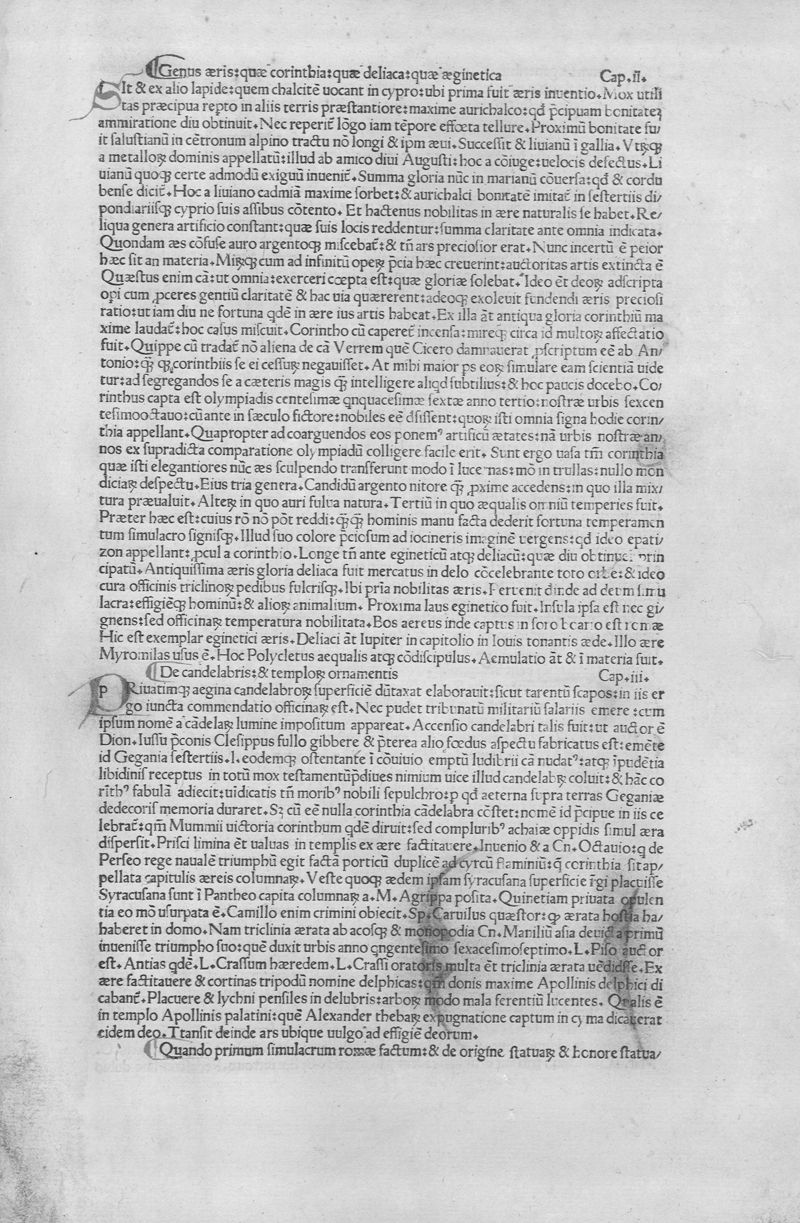 Genus æris: quæ corinthia: quæ deliaca: quæ æginetica Cap. II.
SIt & ex alio lapide: quem chalcitē uocant in cypro: ubi prima fuit æris inuentio. Mox utili
tas præcipua reperto in aliis terris præstantiore: maxime aurichalco: qđ p̄cipuam bonitatē
ammiratione diu obtinuit. Nec reperit̄ lōgo iam tēpore effœta tellure. Proximū bonitate fu/
it salustianū in cētronum alpino tractu nō longi & ipm æui. Successit & liuianū ī gallia. Vtrūq;
a metalloꝝ dominis appellatū: illud ab amico diui Augusti: hoc a cōiuge: uelocis defectus. Li
uianū quoq; certe admodū exiguū inuenit̄. Summa gloria nūc in marianū cōuersa: qđ & cordu
bense dicit̄. Hoc a liuiano cadmiā maxime sorbet: & aurichalci bonitatē imitat̄ in sestertiis di/
pondiariisq; cyprio suis assibus cōtento. Et hactenus nobilitas in ære naturalis se habet. Re/
liqua genera artificio constant: quæ suis locis reddentur: summa claritate ante omnia indicata.
Quondam æs cōfuse auro argentoq; miscebat̄: & tñ ars preciosior erat. Nunc incertū ē peior
hæc sit an materia. Miꝝq; cum ad infinitū opeꝝ p̄cia hæc creuerint: auctoritas artis extincta ē
Quæstus enim cā: ut omnia: exerceri cœpta est: quæ gloriæ solebat. Ideo ēt deoꝝ adscripta
opi cum ꝓceres gentiū claritatē & hac uia quærerent: adeoq; exoleuit fundendi æris preciosi
ratio: ut iam diu ne fortuna qdē in ære ius artis habeat. Ex illa āt antiqua gloria corinthiū ma
xime laudat̄: hoc casus miscuit. Corintho cū caperet̄ incensa: mireq; circa id multoꝝ affectatio
fuit. Quippe cū tradat̄ nō aliena de cā Verrem quē Cicero damnauerat ꝓscriptum eē ab An/
tonio: q̄ q corinthiis se ei cessuꝝ negauisset. At mihi maior ps eoꝝ simulare eam scientiā uide
tur: ad segregandos se a cæteris magis q̄ intelligere aliqd subtilius: & hoc paucis docebo. Co/
rinthus capta est olympiadis centesimæ qnquacesimæ sextæ anno tertio: nostræ urbis sexcen
tesimooctauo: cū ante in sæculo fictore: nobiles eē dſissent: quoꝝ isti omnia signa hodie corin/
thia appellant. Quapropter ad coarguendos eos ponemꝰ artificū ætates: nā urbis nostræ an/
nos ex supradicta comparatione olympiadū colligere facile erit. Sunt ergo uasa tm̄ corinthia
quæ isti elegantiores nūc æs sculpendo transferunt modo ī lucernas: mō in trullas: nullo mon
diciaꝝ despectu. Eius tria genera. Candidū argento nitore q̄ ꝓxime accedens: in quo illa mix/
tura præualuit. Alteꝝ in quo auri fulua natura. Tertiū in quo æqualis omniū temperies fuit.
Præter hæc est: cuius rō nō pōt reddi: q̄q̄ hominis manu facta dederit fortuna temperamen
tum simulacro signisq;. Illud suo colore p̄ciosum ad iocineris imaginē uergens: qđ ideo epati/
zon appellant: ꝓcul a corinthio. Longe tñ ante egineticū atq; deliacū: quæ diu obtinuere prin
cipatū. Antiquissima æris gloria deliaca fuit mercatus in delo cōcelebrante toto orbe: & ideo
cura officinis triclinioꝝ pedibus fulcrisq;. Ibi pria nobilitas æris. Peruenit deinde ad deum simu
lacra: effigiēq; hominū: & alioꝝ animalium. Proxima laus eginetico fuit. Insula ipsa est nec gi/
gnens: sed officinaꝝ temperatura nobilitata. Bos aereus inde captus in foro boario est romæ
Hic est exemplar eginetici æris. Deliaci āt Iupiter in capitolio in Iouis tonantis æde. Illo ære
Myromilas usus ē. Hoc Polycletus aequalis atq; cōdiscipulus. Aemulatio āt & ī materia fuit.
De candelabris: & temploꝝ ornamentis Cap. iii.
PRiuatimq; aegina candelabroꝝ superficiē dūtaxat elaborauit: sicut tarentū scapos: in iis er
go iuncta commendatio officinaꝝ est. Nec pudet tribunatū militariū salariis emere: cum
ipsum nomē a cādelaꝝ lumine impositum appareat. Accensio candelabri talis fuit: ut auctor ē
Dion. Iussu p̄conis Clesippus fullo gibbere & p̄terea alio fœdus aspectu fabricatus est: emēte
id Gegania sestertiis. I. eodemq; ostentante ī cōuiuio emptū ludibrii cā nudatꝰ: atq; īpudētia
libidinis receptus in totū mox testamentū p̄diues nimium uice illud candelabꝝ coluit: & hāc co
rīthꝰ fabulā adiecit: uidicatis tñ moribꝰ nobili sepulchro: p qđ aeterna supra terras Geganiæ
dedecoris memoria duraret. Sꝫ cū eē nulla corinthia cādelabra cōstet: nomē id p̄cipue in iis ce
lebrat̄: qm̄ Mummii uictoria corinthum qdē diruit: sed compluribꝰ achaiæ oppidis simul æra
dispersit. Prisci limina ēt ualuas in templis ex ære factitauere. Inuenio & a Cn. Octauio: q de
Perseo rege naualē triumphū egit factā porticū duplicē ad cyrcū flaminiū: q̄ corinthia sit ap/
pellata capitulis æreis columnaꝝ. Veste quoq; ædem ipsam syracusana superficie r̄gi placuisse
Syracusana sunt ī Pantheo capita columnaꝝ a. M. Agrippa posita. Quinetiam priuata opulen
tia eo mō usurpata ē. Camillo enim crimini obiecit. Sp. Caruilus quæstor: q ærata hostia ha/
haberet in domo. Nam triclinia ærata ab acosq; & monopodia Cn. Manliū asia deuicta primū
inuenisse triumpho suo: quē duxit urbis anno qngentesimo sexacesimoseptimo. L. Piso auctor
est. Antias qdē. L. Crassum hæredem. L. Crassi oratoris multa ēt triclinia ærata uēdidisse. Ex
ære factitauere & cortinas tripodū nomine delphicas: qm̄ donis maxime Apollinis delphici di
cabant̄. Placuere & lychni pensiles in delubris: arboꝝ modo mala ferentiū lucentes. Qualis ē
in templo Apollinis palatini: quē Alexander thebaꝝ expugnatione captum in cyma dicauerat
eidem deo. Ttansit deinde ars ubique uulgo ad effigiē deorum.
Quando primum simulacrum romæ factum: & de origine statuaꝝ & honore statua/